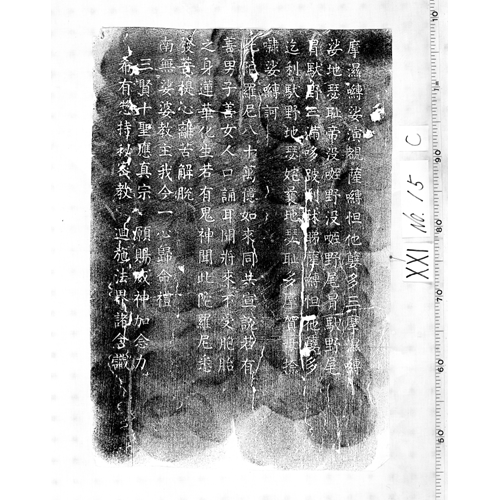 摩濕嚩娑演覩薩嚩怛他蘖多三摩濕嚩
娑地瑟耻帝没䭾野没䭾野尾冐馱野尾
冐馱野三滿哆跛利林第摩嚩怛他蘖多
迄利馱野地瑟姹曩地瑟耻多摩賀母捺
嚇娑嚩訶
此陀羅尼八十萬億如來同共宣說若有
善男子善女人口誦耳聞將來不受胞胎
之身蓮華化生若有鬼神聞此陀羅尼悉
發菩提心離苦解脫
南無娑婆教主我今一心歸命禮
三賢十聖應真宗 願賜威神加念力
希有惣持秘密教 迴施法界諸含識
XXI No. 15 C